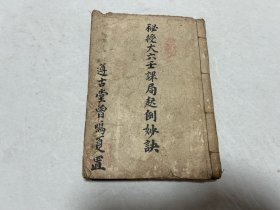 秘授大六壬課局起例妙訣
遵古堂曾鳴貢置